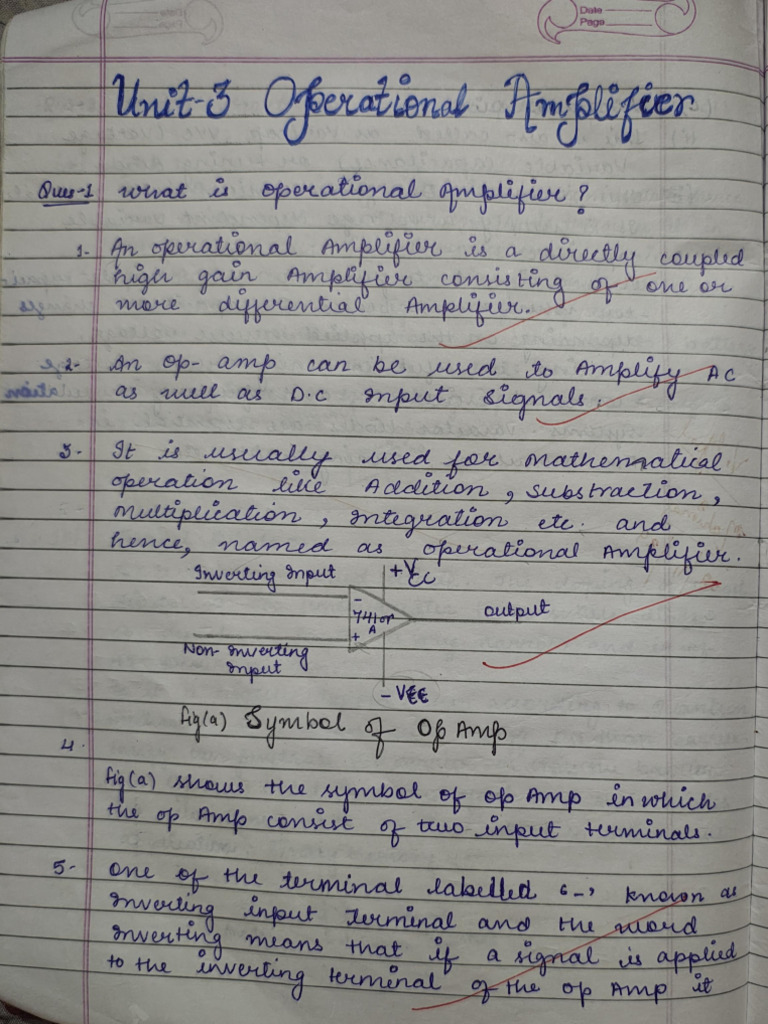 Date
Page
Unit-3 Operational Amplifier
Ques-1 what is operational Amplifier?
1- An operational Amplifier is a directly coupled
high gain Amplifier consisting of one or
more differential Amplifier.
2- An op-amp can be used to Amplify AC
as well as D.C input signals.
3- It is usually used for mathematical
operation like Addition, substraction,
multiplication, integration etc. and
hence, named as operational Amplifier.
Inverting Input
+VCC
-
741 or
A
+
output
Non-inverting
input
-VEE
fig(a) Symbol of Op Amp
4-
fig(a) shows the symbol of op Amp in which
the op Amp consist of two input terminals.
5- one of the terminal labelled '-' known as
inverting input terminal and the word
inverting means that if a signal is applied
to the inverting terminal of the op Amp it